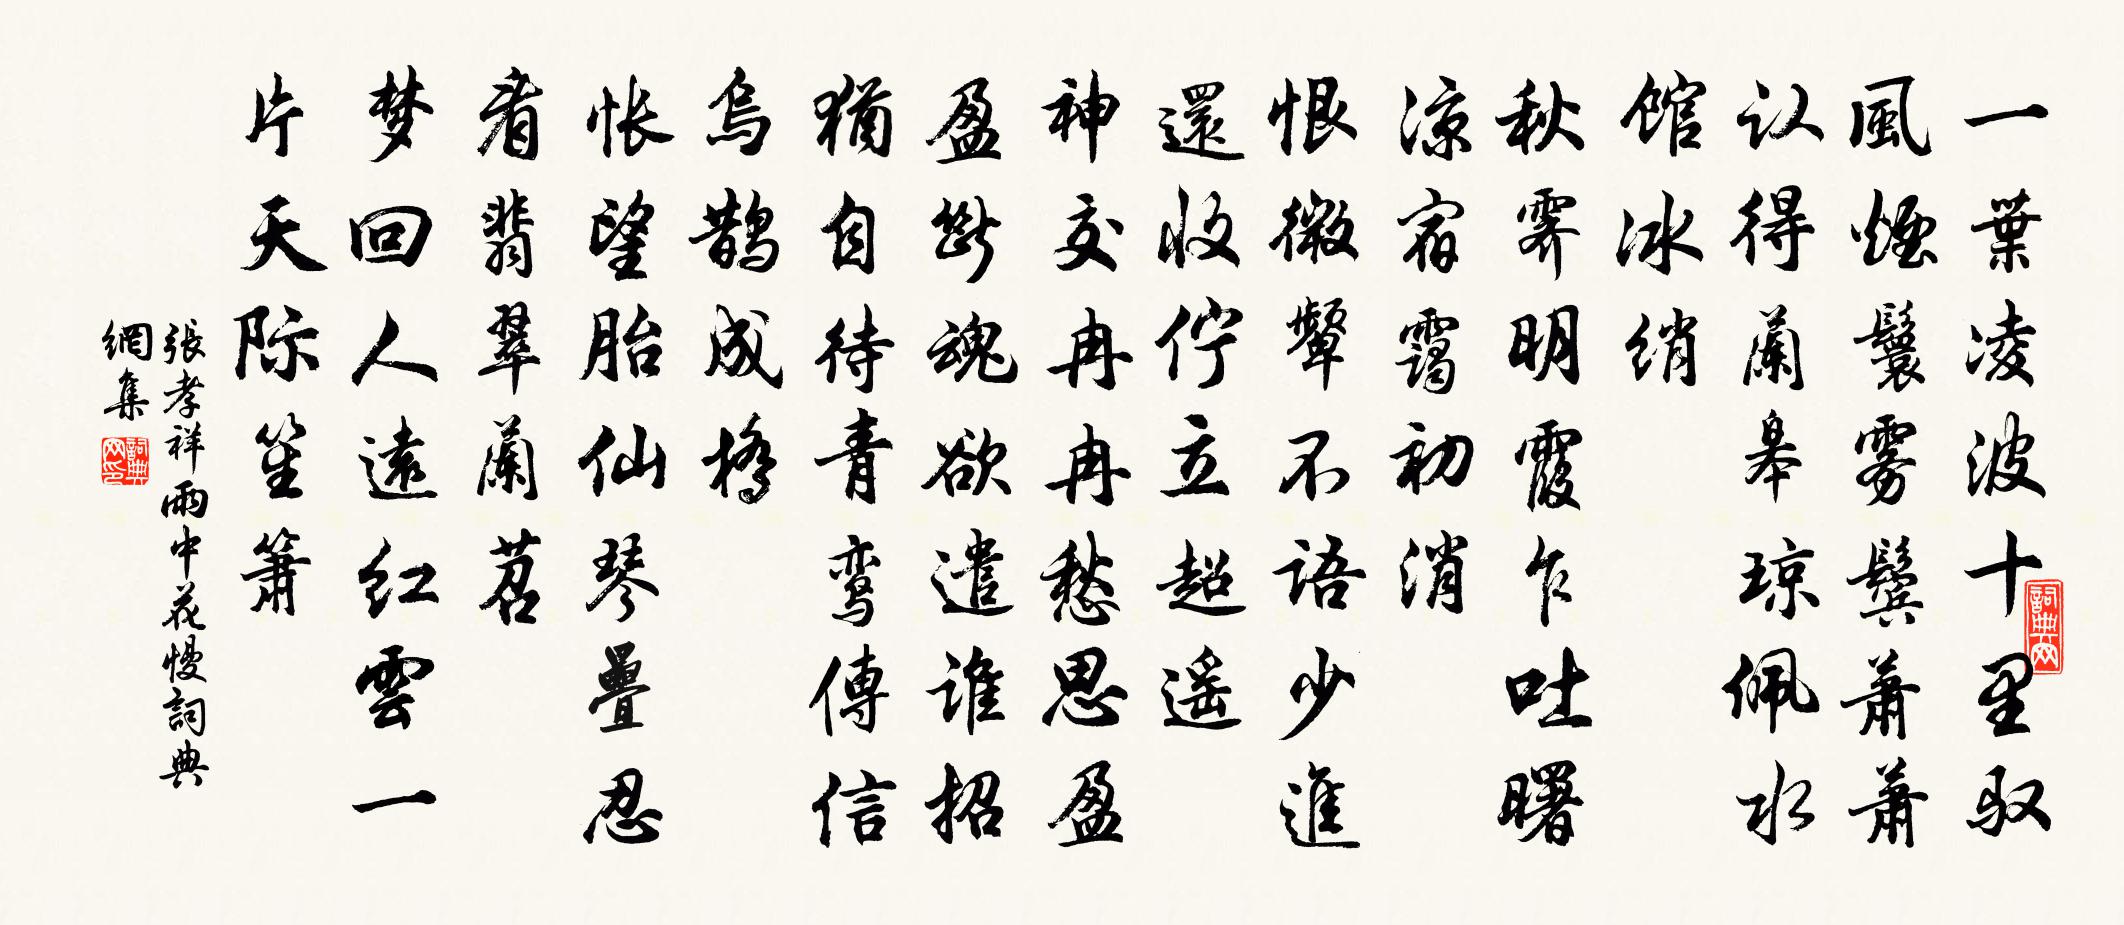 一葉凌波十里驭
風煙鬟雾鬓蕭蕭
认得蘭皋琼佩水
馆冰绡
秋霽明霞乍吐曙
凉宿靄初消
恨微顰不語少進
還收伫立超遥
神交冉冉愁思盈
盈斷魂欲遣谁招
猶自待青鸾傳信
烏鹊成橋
怅望胎仙琴疊忍
看翡翠蘭苕
梦回人遠红雲一
片天际笙簫
張孝祥雨中花慢詞典
網集
詞典网
詞典网印